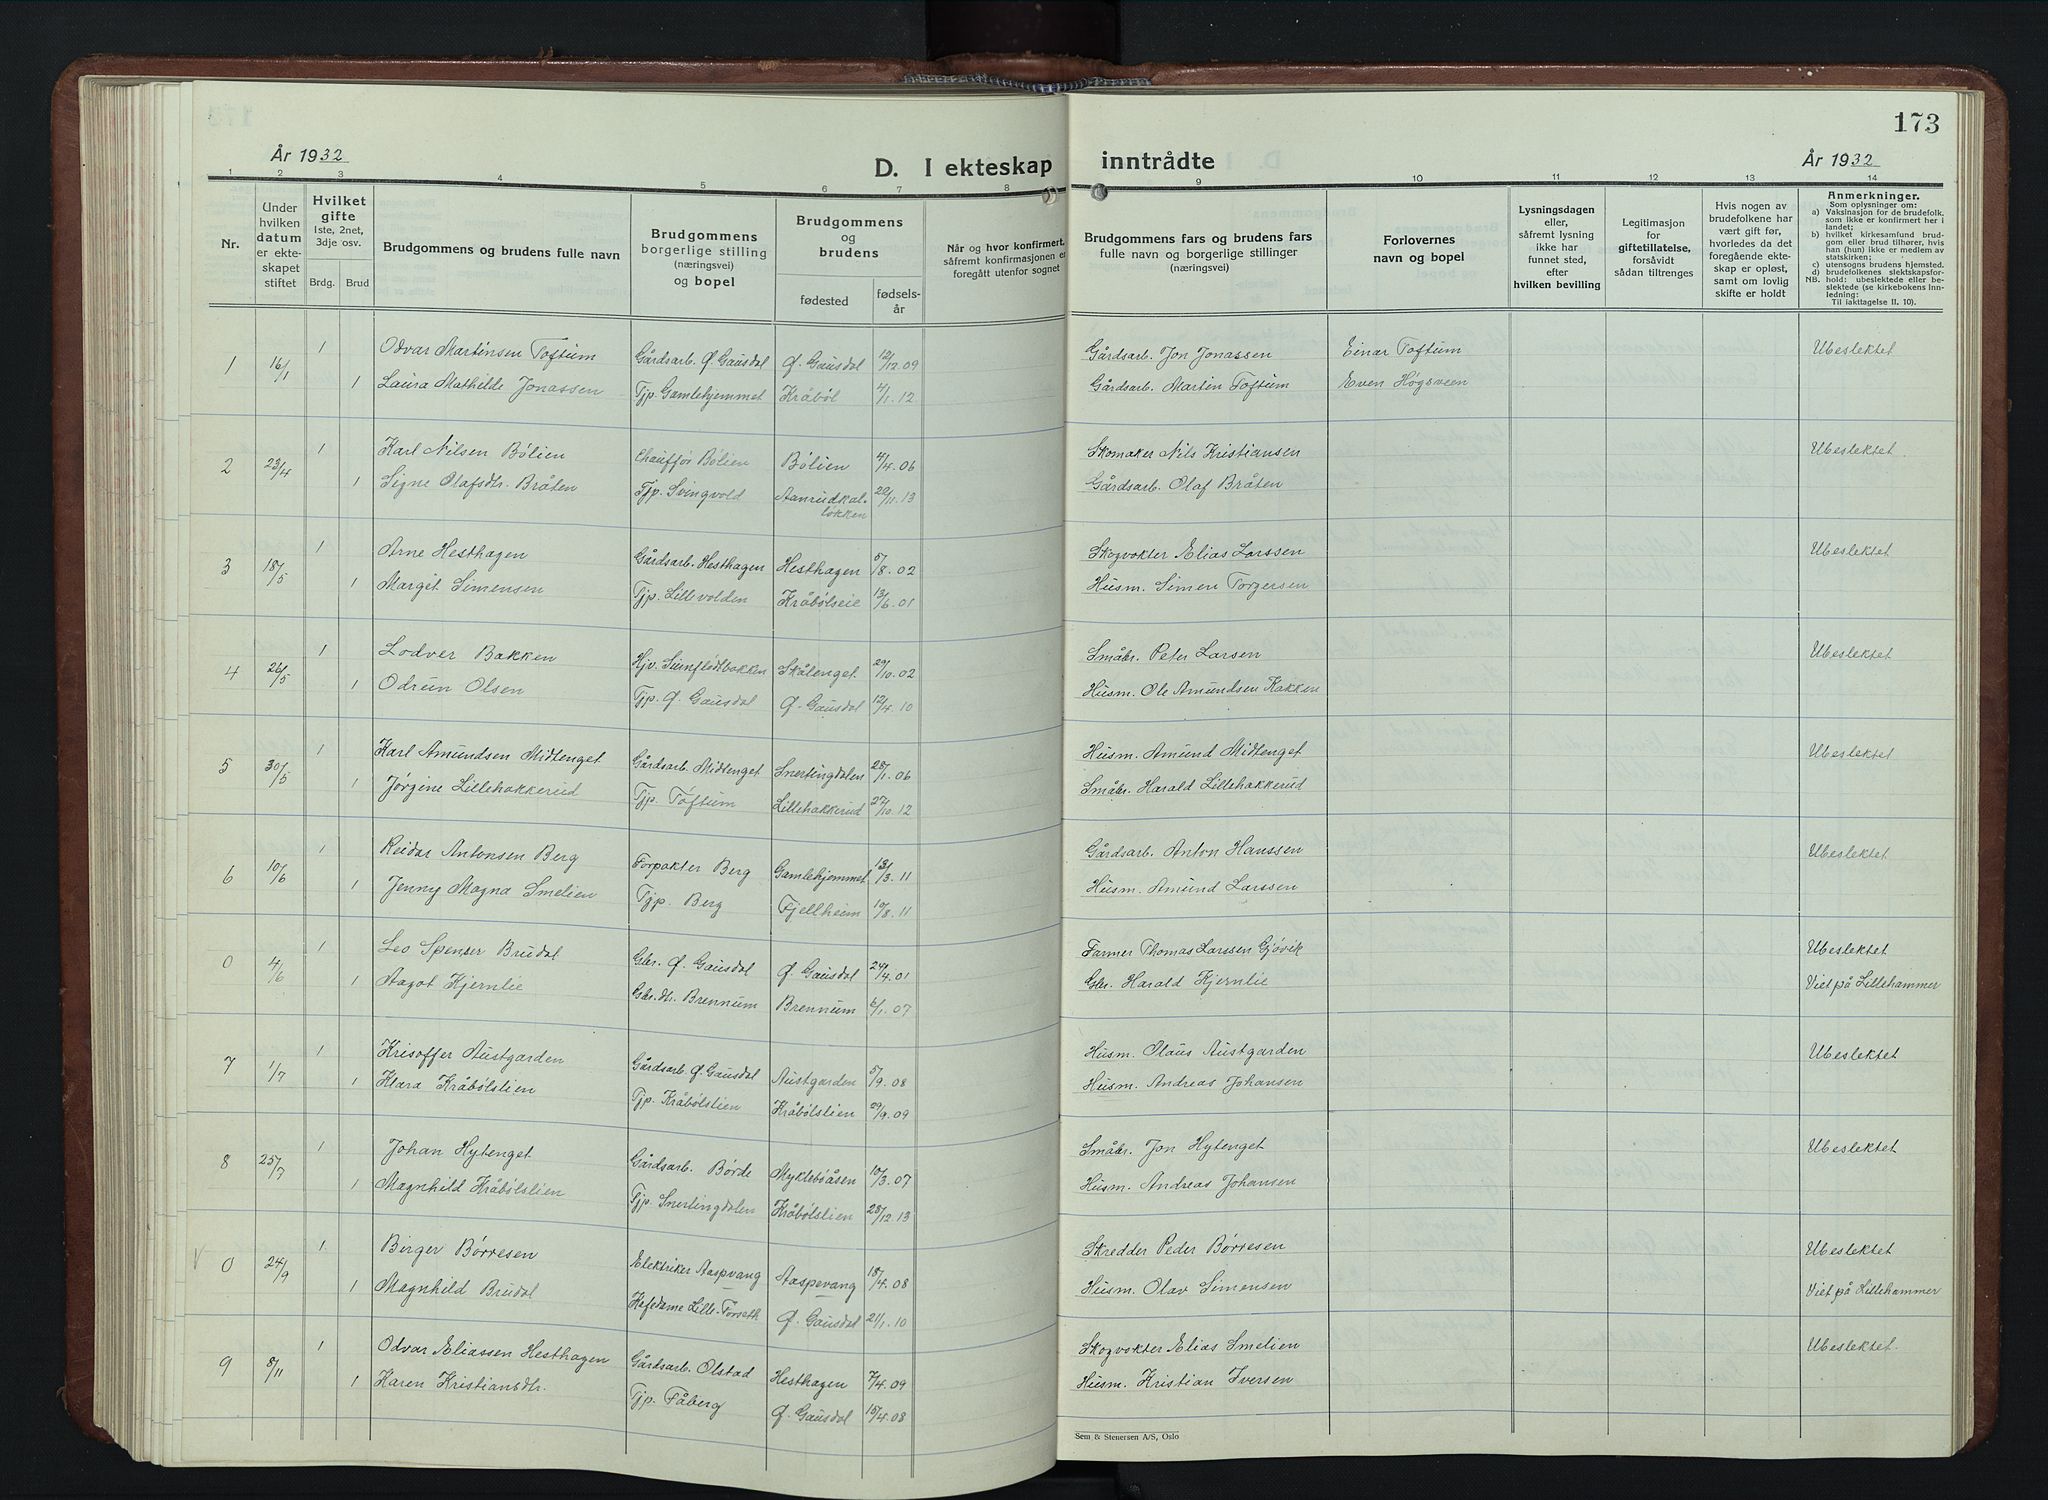 173
År 1932
D. I ekteskap inntrådte
År 1932
1 2 3 4 5 6 7 8 9 10 11 12 13 14
Nr.
Under hvilken datum er ekteskapet stiftet
Hvilket gifte 1ste, 2net, 3dje osv.
Brdg. Brud
Brudgommens og brudens fulle navn
Brudgommens borgerlige stilling (næringsvei) og bopel
Brudgommens og brudens
fødested
fødselsår
Når og hvor konfirmert, såfremt konfirmasjonen er foregått utenfor sognet
Brudgommens fars og brudens fars fulle navn og borgerlige stillinger (næringsvei)
Forlovernes navn og bopel
Lysningsdagen eller, såfremt lysning ikke har funnet sted, efter hvilken bevilling
Legitimasjon for giftetillatelse, forsåvidt sådan tiltrenges
Hvis nogen av brudefolkene har vært gift før, hvorledes da det foregående ekteskap er opløst, samt om lovlig skifte er holdt
Anmerkninger.
Som oplysninger om:
a) Vaksinasjon for de brudefolk, som ikke er konfirmert her i landet;
b) hvilket kirkesamfund brudgom eller brud tilhører, hvis han (hun) ikke er medlem av statskirken;
c) utensogns brudens hjemsted.
d) brudefolkenes slektskapsforhold: ubeslektede eller beslektede (se kirkebokens Innledning:
NB. Til iakttagelse II. 10).
1 16/1 1 Odvar Martinsen Toftum Gårdsarb. Ø. Gausdal Ø. Gausdal 12/12.09 Gårdsarb. Jon Jonassen Einar Toftum Ubeslektet
1 Laura Mathilde Jonassen Tjp. Gamlehjemmet Kråbøl 4/1.12 Gårdsarb. Martin Toftum Even Høgsveen
2 23/4 1 Karl Nilsen Bölien Chauffør Bölien Bölien 4/4.06 Skomaker Nils Kristiansen Ubeslektet.
1 Signe Olafsdtr. Bråten Tjp. Svingvold Aanrudkalløkken 22/11.13 Gårdsarb. Olaf Bråten
3 18/5 1 Arne Hesthagen Gårdsarb. Hesthagen Hesthagen 5/8.02 Skogvokter Elias Larssen Ubeslektet
1 Margit Simensen Tjp. Lillevolden Kråbølseie 13/6.01 Husm. Simen Torgersen
4 26/5 1 Lodver Bakken Hjv. Skålenget 29/10.02 Småbr. Peter Larsen Ubeslektet
1 Odrun Olsen Tjp. Ø. Gausdal Ø. Gausdal 12/4.10 Husm. Ole Amundsen
5 30/5 1 Karl Amundsen Midtenget Gårdsarb. Midtenget Snertingdalen 28/1.06 Husm. Amund Midtenget Ubeslektet
1 Jørgine Lillehakkerud Tjp. Toftum Lillehakkerud 27/10.12 Småbr. Harald Lillehakkerud
6 10/6 1 Reidar Antonsen Berg Forpakter Berg Gamlehjemmet 13/3.11 Gårdsarb. Anton Hanssen Ubeslektet
1 Jenny Magna Smelien Tjp. Berg Fjellheim 10/8.11 Husm. Amund Larssen
0 4/6 1 Leo Spenser Brudal Gbr. Ø. Gausdal Ø. Gausdal 24/4.01 Farmer Thomas Larssen Gjøvik Ubeslektet
1 Aagot Kjernlie Gbr.dtr. Brennum Brennum 6/1.07 Gbr. Harald Kjernlie Viet på Lillehammer
7 1/7 1 Krisoffer Austgarden Gårdsarb. Ø. Gausdal Austgarden 5/9.08 Husm. Olaus Austgarden Ubeslektet
1 Klara Kråbølslien Tjp. Kråbølslien Kråbølslien 29/9.09 Husm. Andreas Johansen
8 25/7 1 Johan Hytenget Gårdsarb. Børde Myklebøåsen 10/3.07 Småbr. Jon Hytenget Ubeslektet
1 Magnhild Kråbølslien Tjp. Snertingdalen Kråbølslien 28/12.13 Husm. Andreas Johansen
V 0 24/9 1 Birger Børresen Elektriker Aaspvang Aaspevang 18/4.08 Skredder Peder Børresen Ubeslektet
1 Magnhild Brudal Kafedame Lille-Forseth Ø. Gausdal 21/1.10 Husm. Olav Simensen Viet på Lillehammer
9 8/11 1 Odvar Eliassen Hesthagen Gårdsarb. Olstad Hesthagen 7/4.09 Skogvokter Elias Smelien Ubeslektet.
1 Karen Kristiansdtr. Tjp. Fåberg Ø. Gausdal 15/4.08 Husm. Kristian Iversen
Sem & Stenersen A/S, Oslo